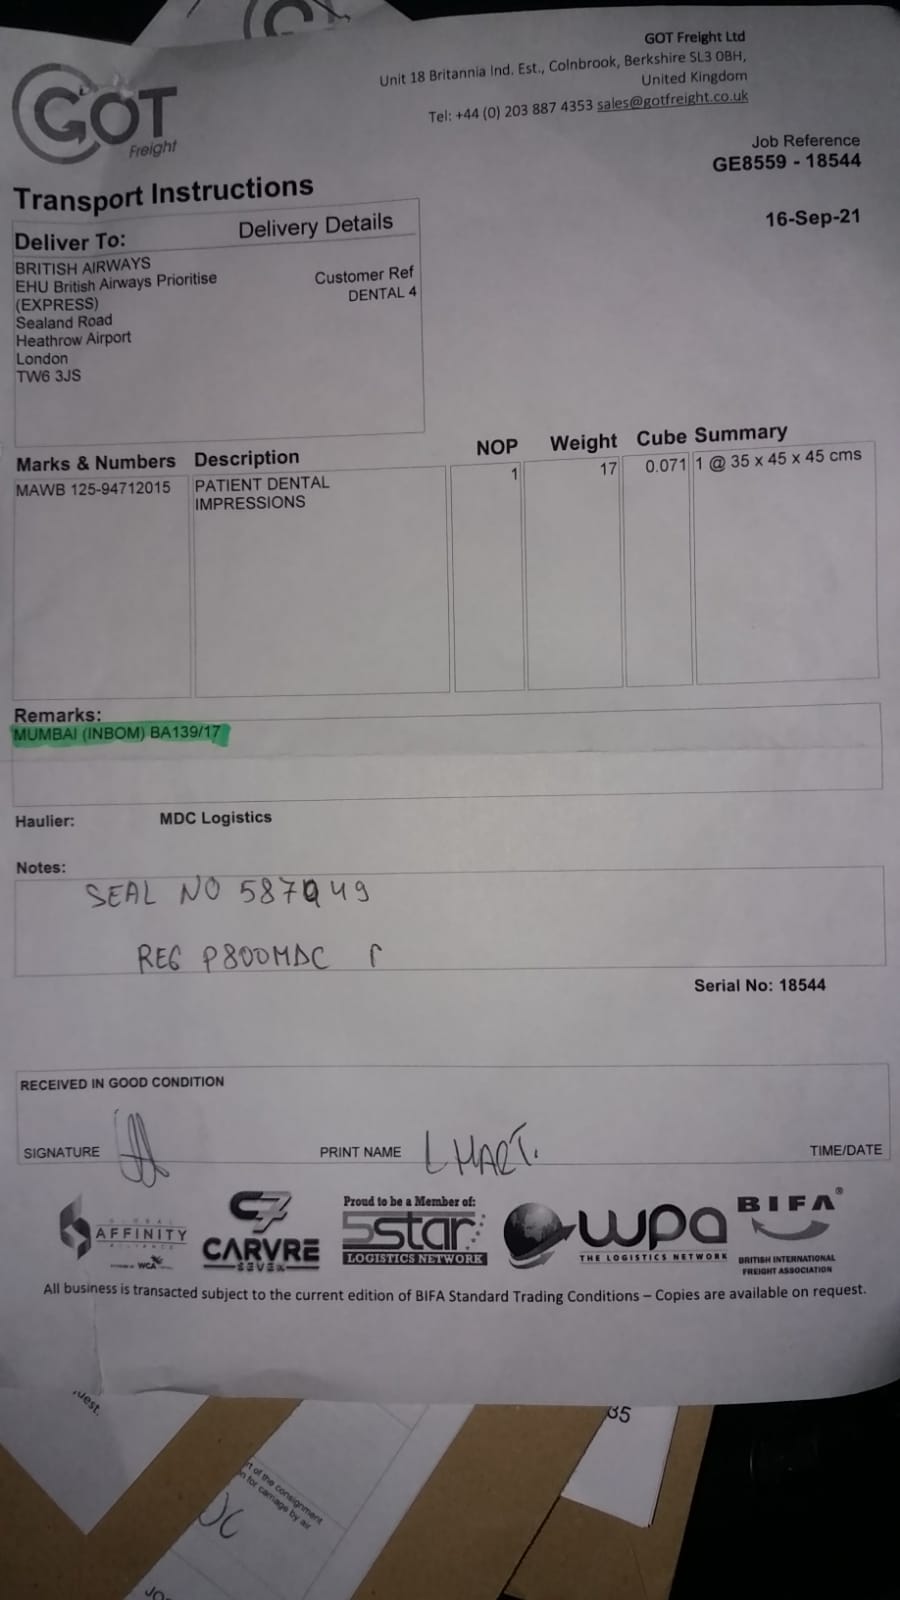 GOT Freight Ltd
Unit 18 Britannia Ind. Est., Colnbrook, Berkshire SL3 0BH,
United Kingdom
Tel: +44 (0) 203 887 4353 sales@gotfreight.co.uk
GOT
Freight
Job Reference
GE8559 - 18544
Transport Instructions
16-Sep-21
Deliver To: Delivery Details
BRITISH AIRWAYS
EHU British Airways Prioritise
(EXPRESS)
Sealand Road
Heathrow Airport
London
TW6 3JS
Customer Ref
DENTAL 4
Marks & Numbers Description NOP Weight Cube Summary
MAWB 125-94712015 PATIENT DENTAL 1 17 0.071 1 @ 35 x 45 x 45 cms
IMPRESSIONS
Remarks:
MUMBAI (INBOM) BA139/17
Haulier: MDC Logistics
Notes:
SEAL NO
REG P800MDC
Serial No: 18544
RECEIVED IN GOOD CONDITION
SIGNATURE PRINT NAME L HART. TIME/DATE
GLOBAL
AFFINITY
ALLIANCE
WCA
C7
CARVRE
SEVEN
Proud to be a Member of:
5star
LOGISTICS NETWORK
wpa
THE LOGISTICS NETWORK
BIFA®
BRITISH INTERNATIONAL
FREIGHT ASSOCIATION
All business is transacted subject to the current edition of BIFA Standard Trading Conditions – Copies are available on request.
of the consignment
for carriage by air